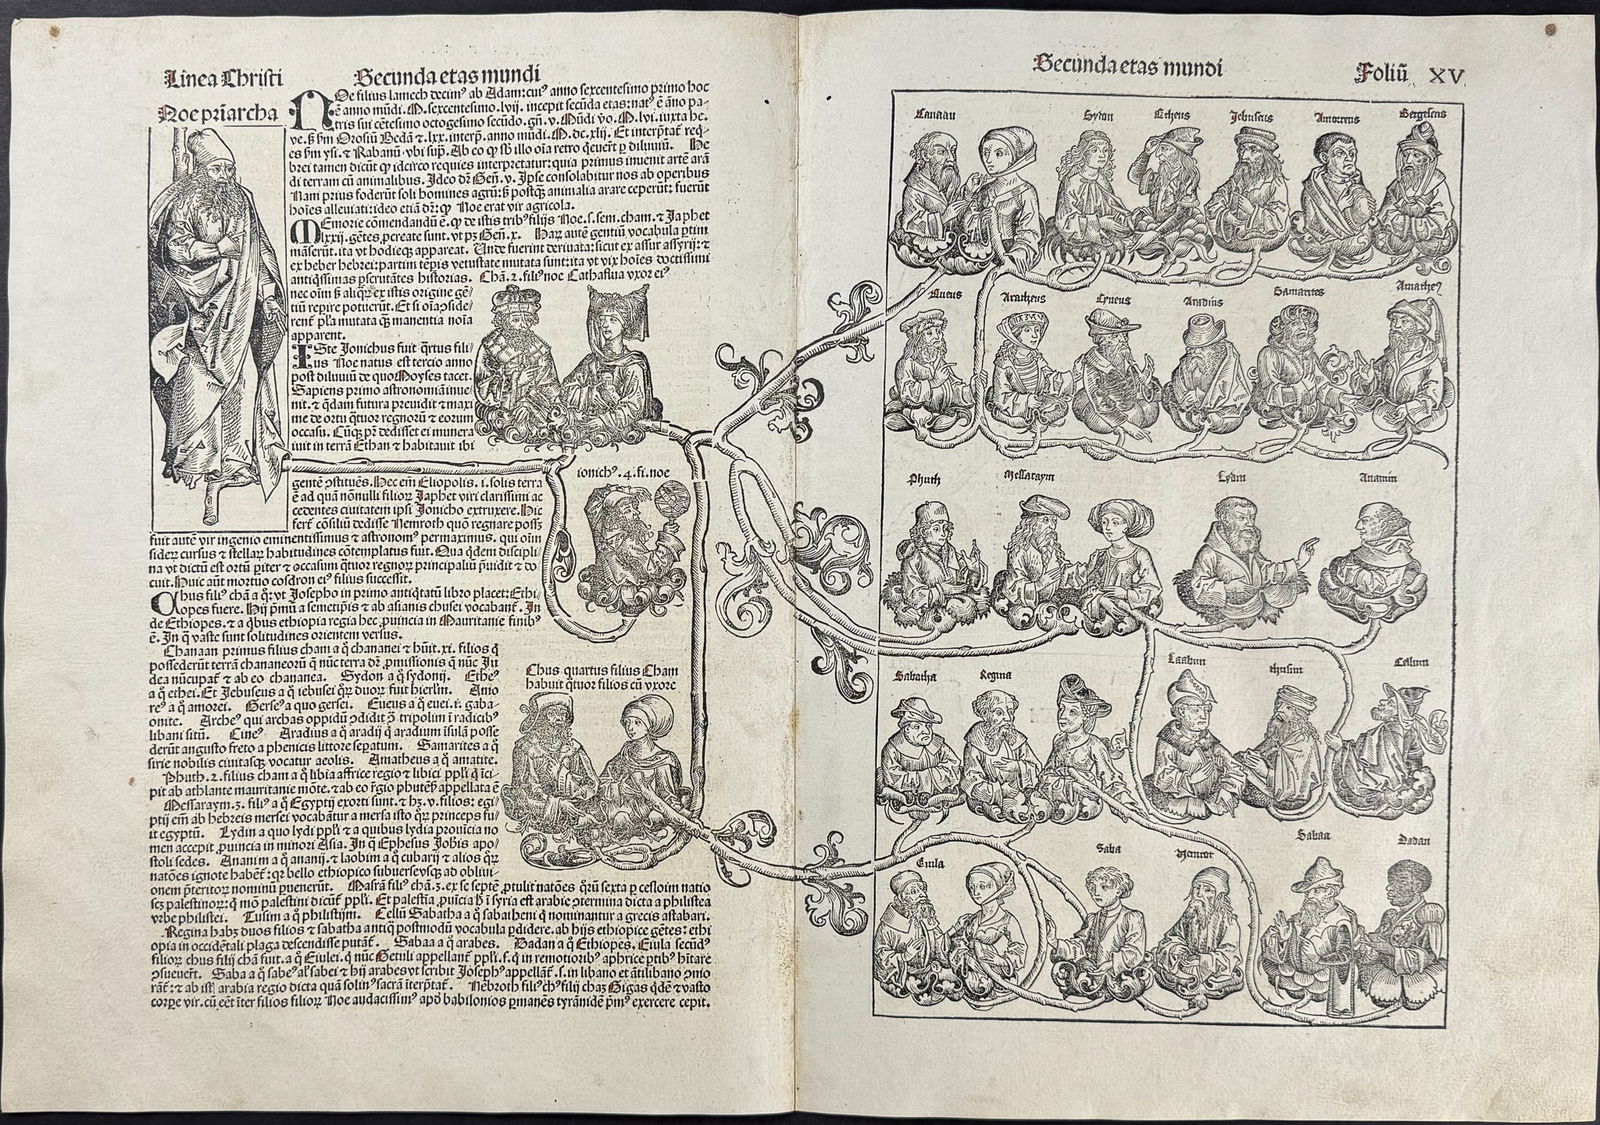 Linea Christi
Secunda etas mundi
Noe pr̃iarcha
Noe filius lamech decimꝰ ab Adam: cuiꝰ anno sexcentesimo primo hoc
ē anno mũdi. M. sexcentesimo. lvij. incepit secũda etas: natꝰ ē año pa-
tris sui cẽtesimo octogesimo secũdo.
Ab eo
retro
diluviũ. He
brei tamen dicũt idcirco requies interpretatur: quia primus invenit artẽ arã
di terram cũ animalibus. Ideo dr̃ Geñ. v. Ipse consolabitur nos ab operibus
Nam prius foderũt soli homines agrũ: postqȝ animalia arare ceperũt: fuerũt
hoĩes alleviati: ideo etiã dr̃: Noe erat vir agricola.
MEmorie cõmendandũ ē. de istis tribꝰ filijs Noe. s. sem. cham. ⁊ Japhet
lxxij. gẽtes pcreate sunt. vt Geñ. x. Harũ autẽ gentiũ vocabula ptim
mãserũt. ita vt hodieqȝ appareat. Unde fuerint derivata: sicut ex assur assyrij: ⁊
ex heber hebrei: partim tẽpis vetustate mutata sunt: ita vt vix hoĩes doctissimi
antiq̃ssimas pscrutãtes historias. Chã. 2. filiꝰ noe Cathaflua vxor eiꝰ
nec oĩm ex istis origine gẽ-
tiũ repire potuerũt. Et si oĩa ꝯside-
rent̃ pl̃a mutata manentia noĩa
apparent.
ISte Jonichus fuit q̃rtus fili-
us Noe natus est tercio anno
post diluviũ de quo Moyses tacet.
Sapiens primo astronomiã inve
nit. ⁊ q̃dam futura previdit ⁊ maxi
me de ortu q̃tuor regnorũ ⁊ eorum
occasu. Cũqȝ pr̃ dedisset ei munera
iuit in terrã Ethan ⁊ habitavit ibi
ionichꝰ. 4. fi. noe
gentẽ ꝯstituẽs. Hec em̃ Eliopolis. i. solis terra
ē ad quã nõnulli filiorũ Japhet viri clarissimi ac
cedentes civitatem ipsi Jonicho extruxere. Hic
fert̃ cõsiliũ dedisse Nemroth quõ regnare possȝ
fuit autẽ vir ingenio eminentissimus ⁊ astronomꝰ permaximus. qui oĩm
siderũ cursus ⁊ stellarũ habitudines cõtemplatus fuit. Qua q̃dem discipli-
na vt dictũ est ortũ pïter ⁊ occasum q̃tuor regnorũ principaliũ pvidit ⁊ do
cuit. Huic aũt mortuo cosdron eiꝰ filius successit.
Chus filiꝰ chã a q̃: vt Josepho in primo antiq̃tatũ libro placet: Ethi
opes fuere. Hij pm̃ũ a semetip̃is ⁊ ab asianis chusei vocabant̃. In
de Ethiopes. ⁊ a q̃bus ethiopia regia hec pvincia in Mauritanie finibꝰ
ē. In q̃ vaste sunt solitudines orientem versus.
Chanaan primus filius cham a q̃ chananei ⁊ hũit. xi. filios q̃
possederũt terrã chananeorũ q̃ nũc terra dr̃ pmissionis q̃ nũc Ju
dea nũcupat̃ ⁊ ab eo chananea. Sydon a q̃ sydonij. Etheꝰ
a q̃ ethei. Et Jebuseus a q̃ iebusei q̃rũ duorũ fuit hierlm̃. Amo
reꝰ a q̃ amorei. Gerseꝰ a quo gersei. Eueus a q̃ euei. i. gaba-
onite. Archeꝰ qui archas oppidũ ꝯdidit tripolim ĩ radicibꝰ
libani sitũ. Cineꝰ Aradius a q̃ aradij q̃ aradium ĩsulã posse
derũt angusto freto a phenicis littore sepatum. Samarites a q̃
sirie nobilis civitasqȝ vocatur aeolis. Amatheus a q̃ amatite.
Phuth. 2. filius cham a q̃ libia affrice regio ⁊ libici ppl̃i q̃ ĩci-
pit ab athlante mauritanie mõte. ⁊ ab eo regio phutẽsis appellata ē
Messaraym. 3. filiꝰ a q̃ Egyptij exorti sunt. ⁊ hȝ. v. filios: egi-
ptij em̃ ab hebreis mersei vocabãtur a mersa isto princeps fu-
it egyptũ. Lydin a quo lydi ppl̃i ⁊ a quibus lydia provĩcia no
men accepit pvincia in minori Asia. In q̃ Ephesus Johis apo-
stoli sedes. Ananim a q̃ ananij. ⁊ laobim a q̃ cubarij ⁊ alios
natões ignote habẽt̃: bello ethiopico subversusqȝ ad oblivi-
onem pteritorũ nominũ pvenerũt. chã. 3. ex se septẽ ptulit natões q̃rũ sexta natio
palestinorũ: q̃ mõ palestini dicũt̃ ppl̃i. Et palestia pvĩcia ĩ syria est arabie ꝯtermina dicta a philistea
vrbe philistei. Tusim a q̃ philistijm. Cellũ Sabatha a q̃ sabatheni q̃ nominantur a grecis astabari.
Regina habȝ duos filios ⁊ sabatha antiq̃ postmodũ vocabula pdidere. ab hijs ethiopice gẽtes: ethi
opia in occidẽtali plaga descendisse putãt̃. Sabaa a q̃ arabes. Dadan a q̃ Ethiopes. Eiula secũdꝰ
filiorũ chus filij chã fuit. a q̃ Eiulei. q̃ nũc Getuli appellant̃ ppl̃i. s. q̃ in remotioribꝰ aphrice ptibꝰ hĩtare
ꝯsueuert̃. Saba a q̃ sabeꝰ al̃ sabei ⁊ hij arabes vt scribit Josephꝰ appellãt̃. s. in libano et ãtilibano
rãt̃: ⁊ ab arabia regio dicta quã solinꝰ sacrã ĩterp̃tat̃. Nẽbroth filiꝰ chꝰ filij chaȝ Gigas q̃dẽ ⁊ vasto
corpe vir. cũ eẽt ĩter filios filiorũ Noe audacissimꝰ apd̃ babilonios pmanẽs tyrãnidẽ pm̃ꝰ exercere cepit.
Chus quartus filius Cham
habuit q̃tuor filios cũ vxore
Secunda etas mundi
Foliũ XV
Canaan
Sydon
Etheus
Jebuseus
Amorreus
Gergeseus
Eueus
Aratheus
Cyneus
Aradius
Samarites
Amatheꝰ
Phuth
Messaraym
Lydin
Anamin
Sabatha
Regma
Laabim
thusim
Cesluim
Eiula
Saba
Nemrot
Sabaa
Dadan